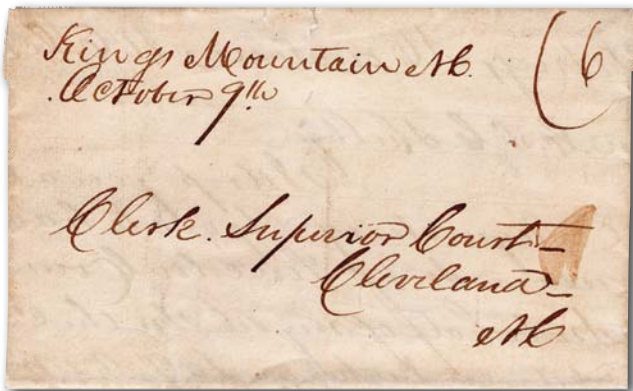 Kings Mountain NC. (6
October 9th
Clerk. Superior Court
Cleveland
NC